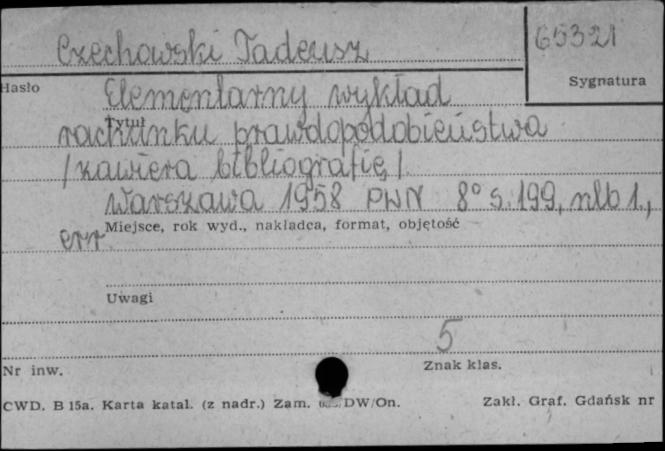 Czechowski Tadeusz
65321
Hasło
Sygnatura
Elementarny wykład
Tytuł
rachunku prawdopodobieństwa
/zawiera bibliografię/.
Warszawa 1958 PWN 8° s. 199, nlb 1.,
Miejsce, rok wyd., nakładca, format, objętość
err
Uwagi
5
Nr inw.
Znak klas.
CWD. B 15a. Karta katal. (z nadr.) Zam. DW/On.
Zakł. Graf. Gdańsk nr